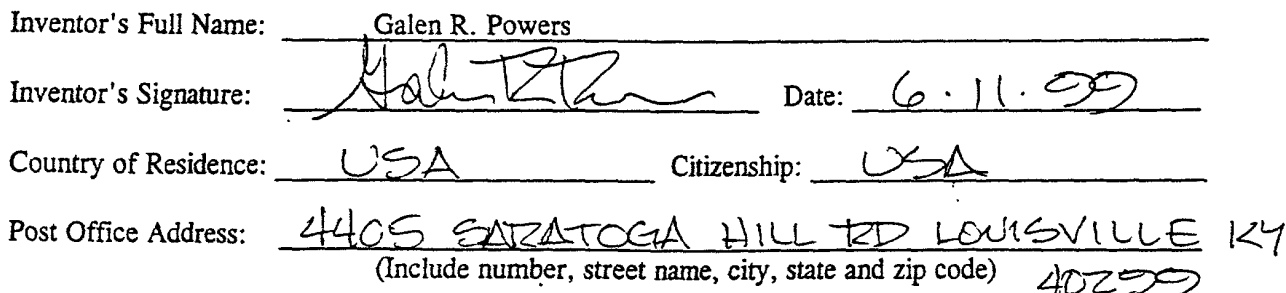 Inventor's Full Name: Galen R. Powers
Inventor's Signature: Galen R. Powers Date: 6.11.99
Country of Residence: USA Citizenship: USA
Post Office Address: 4405 SARATOGA HILL RD LOUISVILLE KY
(Include number, street name, city, state and zip code) 40299